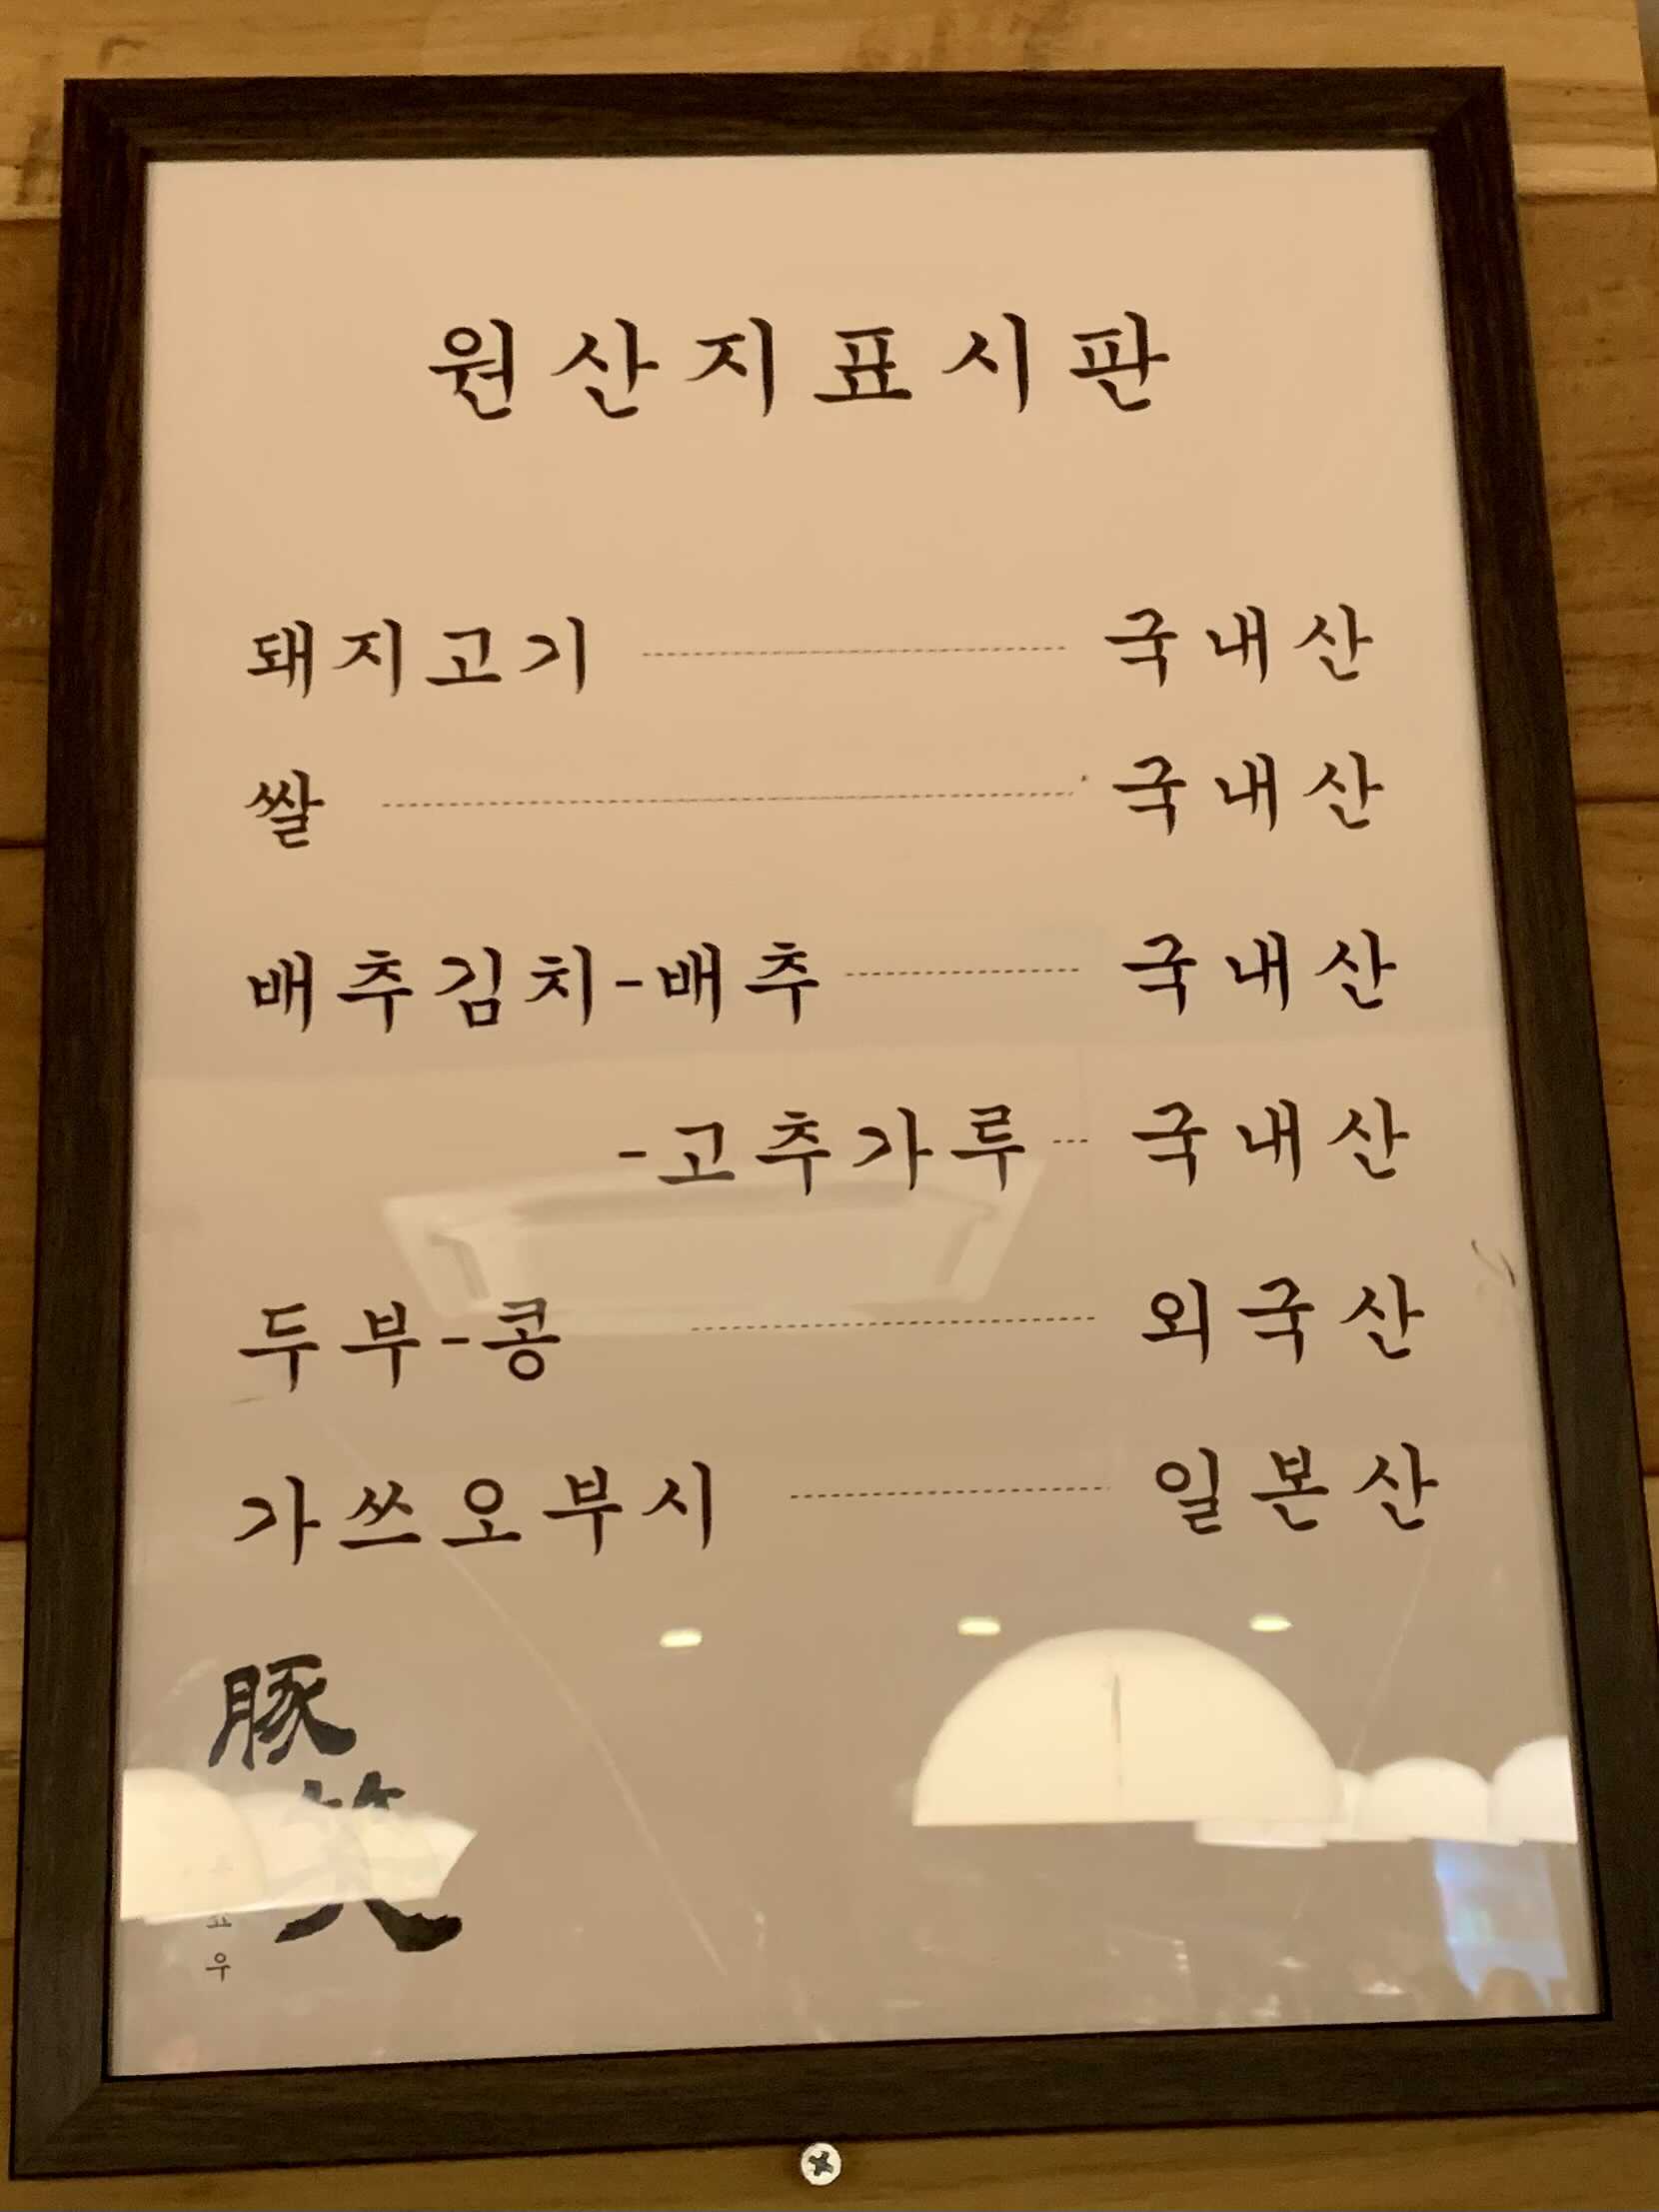 원산지표시판
돼지고기 국내산
쌀 국내산
배추김치-배추 국내산
-고추가루 국내산
두부-콩 외국산
가쓰오부시 일본산
豚